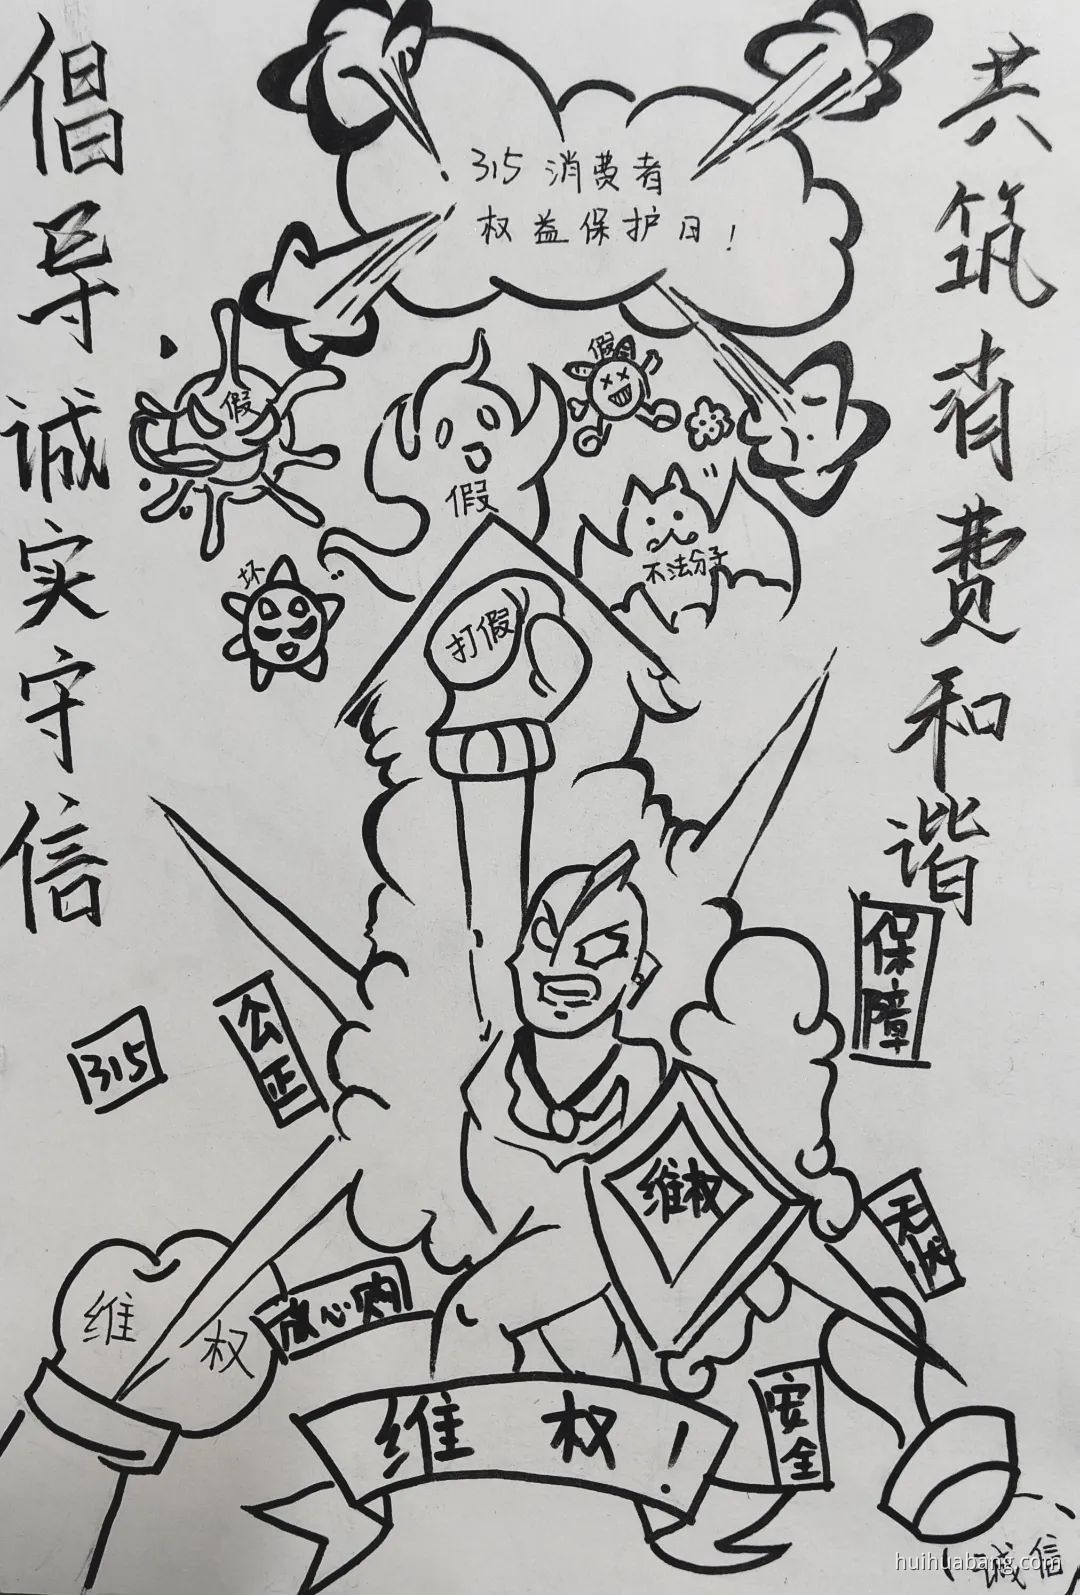 倡导诚实守信
315 消费者
权益保护日！
共筑消费和谐
假
假
假
不法分子
坏
打假
保障
公正
315
维权
无忧
放心购
维权
维权！
安全
诚信
huihuabang.com